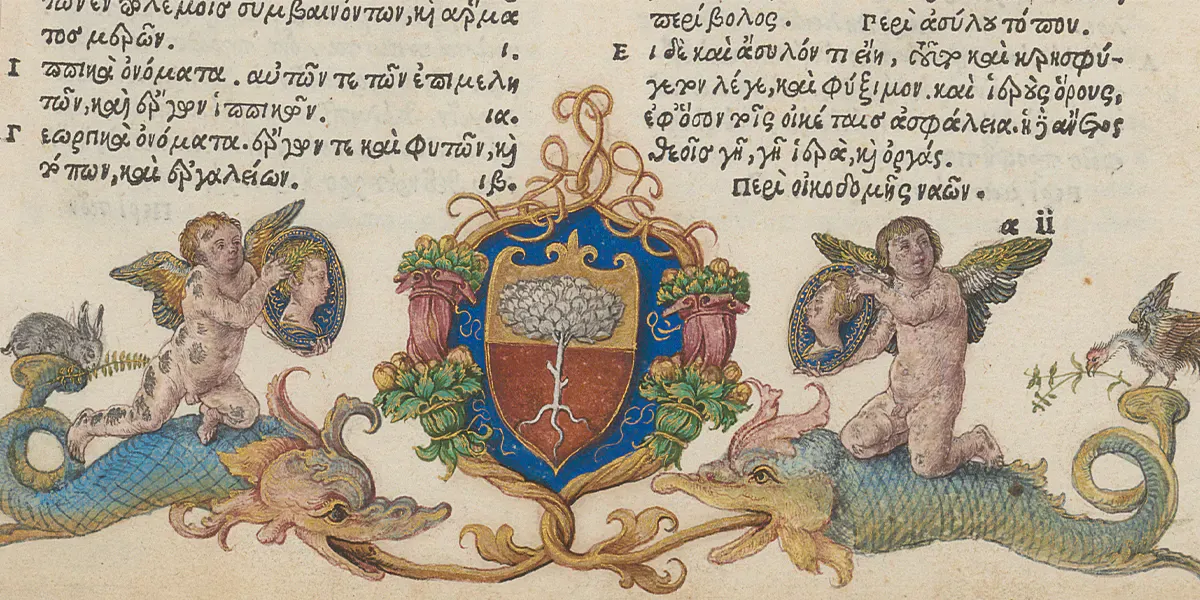 των ἐν πολέμοις συμβαινόντων, καὶ ἅρμα
τος μερῶν. ι.
Ιππικὰ ὀνόματα. αὐτῶν τε τῶν ἐπιμελη
τῶν, καὶ ἔργων ἱππικῶν. ια.
Γεωργικὰ ὀνόματα. ἔργων τε καὶ φυτῶν, καὶ
τόπων, καὶ ἐργαλείων. ιβ.
περίβολος. Περὶ ἀσύλου τόπου.
Ει δὲ καὶ ἄσυλόν τι εἴη, τοῦτο καὶ κρησφύ-
γετον λέγε, καὶ φύξιμον. καὶ ἱεροὺς ὅρους,
ἐφ' ὅσον τοῖς οἰκέταις ἀσφάλεια. ἡ δὲ ἄνετος
θεοῖς γῆ, γῆ ἱερὰ, καὶ ὀργάς.
Περὶ οἰκοδομῆς ναῶν.
a ii